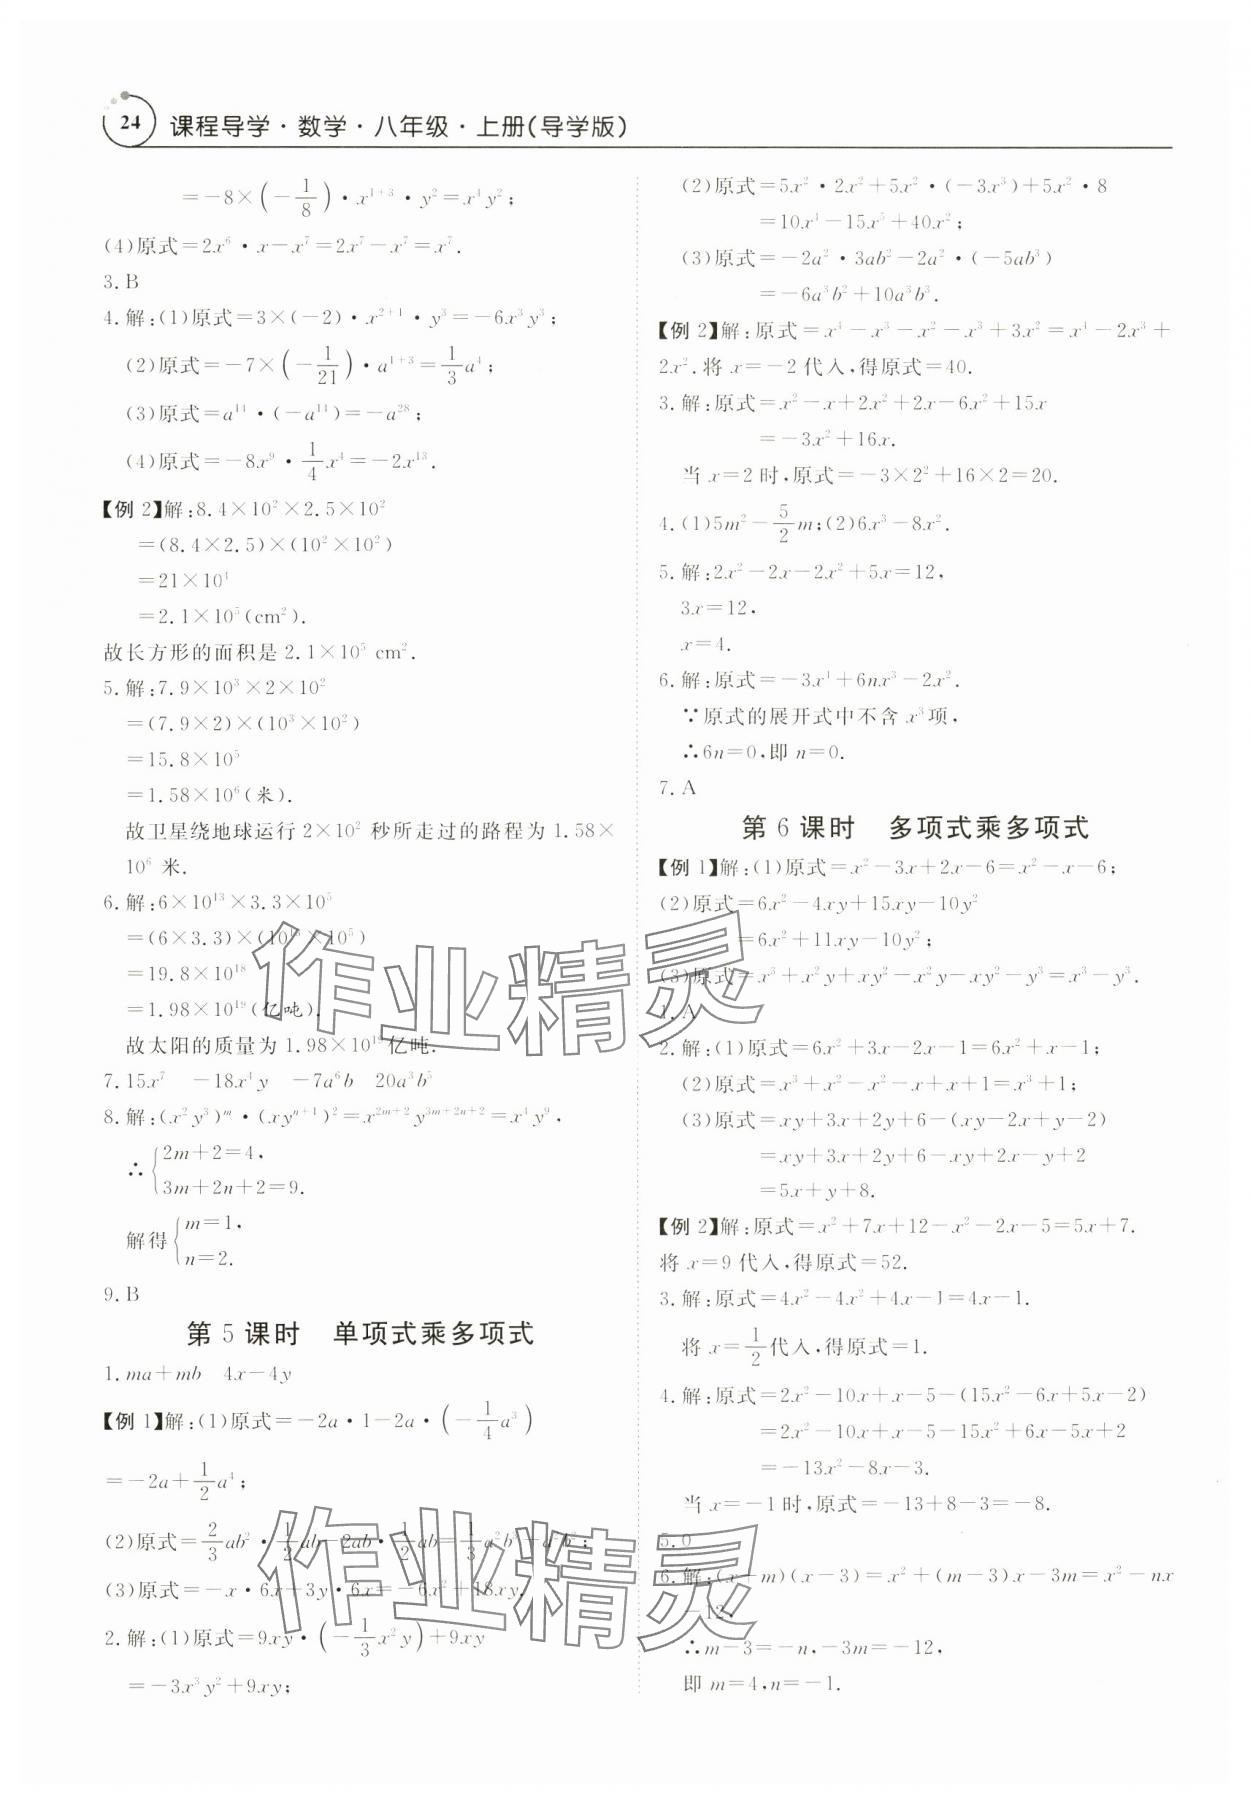 24 课程导学·数学·八年级·上册(导学版)
=-8×(-1/8)·x^{1+3}·y²=x⁴y²;
(4)原式=2x⁶·x-x⁷=2x⁷-x⁷=x⁷.
3.B
4.解:(1)原式=3×(-2)·x^{2+1}·y³=-6x³y³;
(2)原式=-7×(-1/21)·a^{1+3}=1/3a⁴;
(3)原式=a¹⁴·(-a¹⁴)=-a²⁸;
(4)原式=-8x⁹·1/4x⁴=-2x¹³.
【例 2】解:8.4×10²×2.5×10²
=(8.4×2.5)×(10²×10²)
=21×10⁴
=2.1×10⁵(cm²).
故长方形的面积是 2.1×10⁵ cm².
5.解:7.9×10³×2×10²
=(7.9×2)×(10³×10²)
=15.8×10⁵
=1.58×10⁶(米).
故卫星绕地球运行 2×10² 秒所走过的路程为 1.58×
10⁶ 米.
6.解:6×10¹³×3.3×10⁵
=(6×3.3)×(10¹³×10⁵)
=19.8×10¹⁸
=1.98×10¹⁹(亿吨).
故太阳的质量为 1.98×10¹⁹亿吨.
7.15x⁷ -18x⁴y -7a⁶b 20a³b⁵
8.解:(x²y³)^m·(xy^{n+1})²=x^{2m+2}y^{3m+2n+2}=x⁴y⁹,
∴{2m+2=4,
3m+2n+2=9.
解得{m=1,
n=2.
9.B
第 5 课时 单项式乘多项式
1.ma+mb 4x-4y
【例 1】解:(1)原式=-2a·1-2a·(-1/4a³)
=-2a+1/2a⁴;
(2)原式=2/3ab²·1/2ab-2ab·1/2ab=1/3a²b³-a²b²;
(3)原式=-x·6x-3y·6x=-6x²+18xy.
2.解:(1)原式=9xy·(-1/3x²y)+9xy
=-3x³y²+9xy;
(2)原式=5x²·2x²+5x²·(-3x³)+5x²·8
=10x⁴-15x⁵+40x²;
(3)原式=-2a²·3ab²-2a²·(-5ab³)
=-6a³b²+10a³b³.
【例 2】解:原式=x⁴-x³-x²-x³+3x²=x⁴-2x³+
2x².将 x=-2 代入,得原式=40.
3.解:原式=x²-x+2x²+2x-6x²+15x
=-3x²+16x.
当 x=2 时,原式=-3×2²+16×2=20.
4.(1)5m²-5/2m;(2)6x³-8x².
5.解:2x²-2x-2x²+5x=12,
3x=12,
x=4.
6.解:原式=-3x⁴+6nx³-2x².
∵原式的展开式中不含 x³项,
∴6n=0,即 n=0.
7.A
第 6 课时 多项式乘多项式
【例 1】解:(1)原式=x²-3x+2x-6=x²-x-6;
(2)原式=6x²-4xy+15xy-10y²
=6x²+11xy-10y²;
(3)原式=x³+x²y+xy²-x²y-xy²-y³=x³-y³.
1.A
2.解:(1)原式=6x²+3x-2x-1=6x²+x-1;
(2)原式=x³+x²-x²-x+x+1=x³+1;
(3)原式=xy+3x+2y+6-(xy-2x+y-2)
=xy+3x+2y+6-xy+2x-y+2
=5x+y+8.
【例 2】解:原式=x²+7x+12-x²-2x-5=5x+7.
将 x=9 代入,得原式=52.
3.解:原式=4x²-4x²+4x-1=4x-1.
将 x=1/2代入,得原式=1.
4.解:原式=2x²-10x+x-5-(15x²-6x+5x-2)
=2x²-10x+x-5-15x²+6x-5x+2
=-13x²-8x-3.
当 x=-1 时,原式=-13+8-3=-8.
5.0
6.解:(x+m)(x-3)=x²+(m-3)x-3m=x²-nx
-12,
∴m-3=-n,-3m=-12,
即 m=4,n=-1.
作业精灵
作业精灵